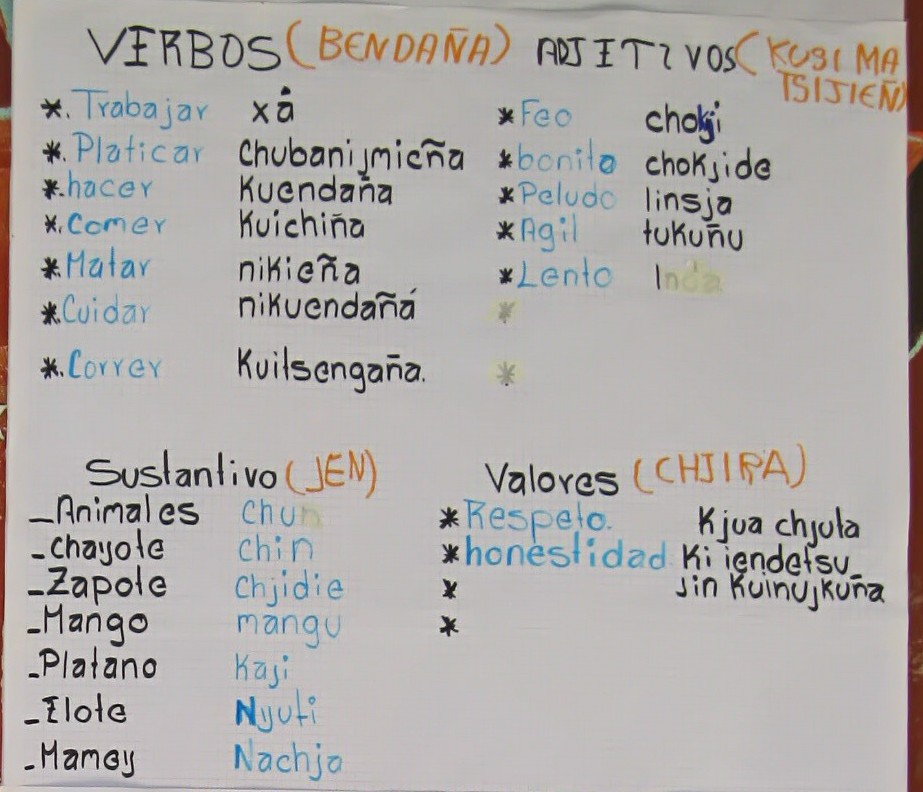 VERBOS (BENDAÑA)
*. Trabajar xå
*. Platicar chubanijmieña
*. hacer Kuendaña
*. Comer Kuichiña
*. Matar nikieña
*. Cuidar nikuendañá
*. Correr Kuitsengaña.
ADJETIVOS (KUSI MA
TSIJIEÑ)
* Feo chokji
* bonito chokjide
* Peludo linsja
* Agil tukuñu
* Lento Inda
*
*
Sustantivo (JEN)
_Animales chun
_chayote chin
_Zapote chjidie
_Mango mangu
_Platano Kaji
_Elote Nyuti
_Mamey Nachja
Valores (CHJIRA)
* Respeto. Kjua chjuta
* honestidad Ki iendetsu_
* Jin Kuinujkuña
*